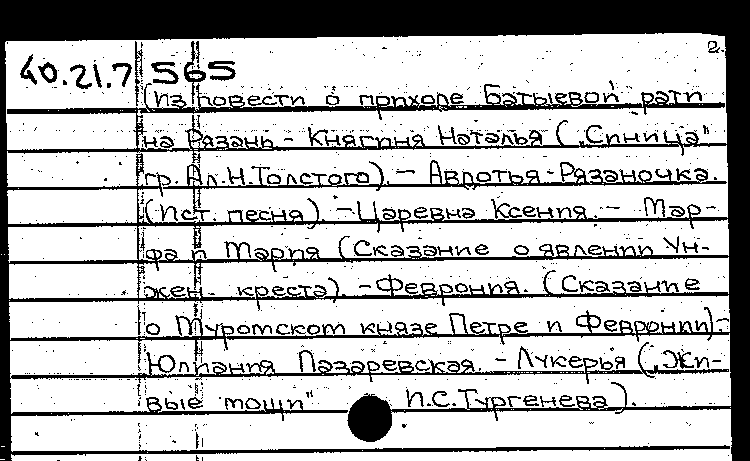 2.
40.21.7 565
(Из повести о приходе Батыевой рати
на Рязань.- Княгиня Наталья („Синица"
гр. Ал.Н.Толстого).- Авдотья-Рязаночка.
(Ист. песня).-Царевна Ксения.- Мар-
фа и Мария (Сказание о явлении Ун-
жен. креста).-Феврония. (Сказание
о Муромском князе Петре и Февронии).-
Юлиания Лазаревская.-Лукерья („Жи-
вые мощи" И.С.Тургенева).